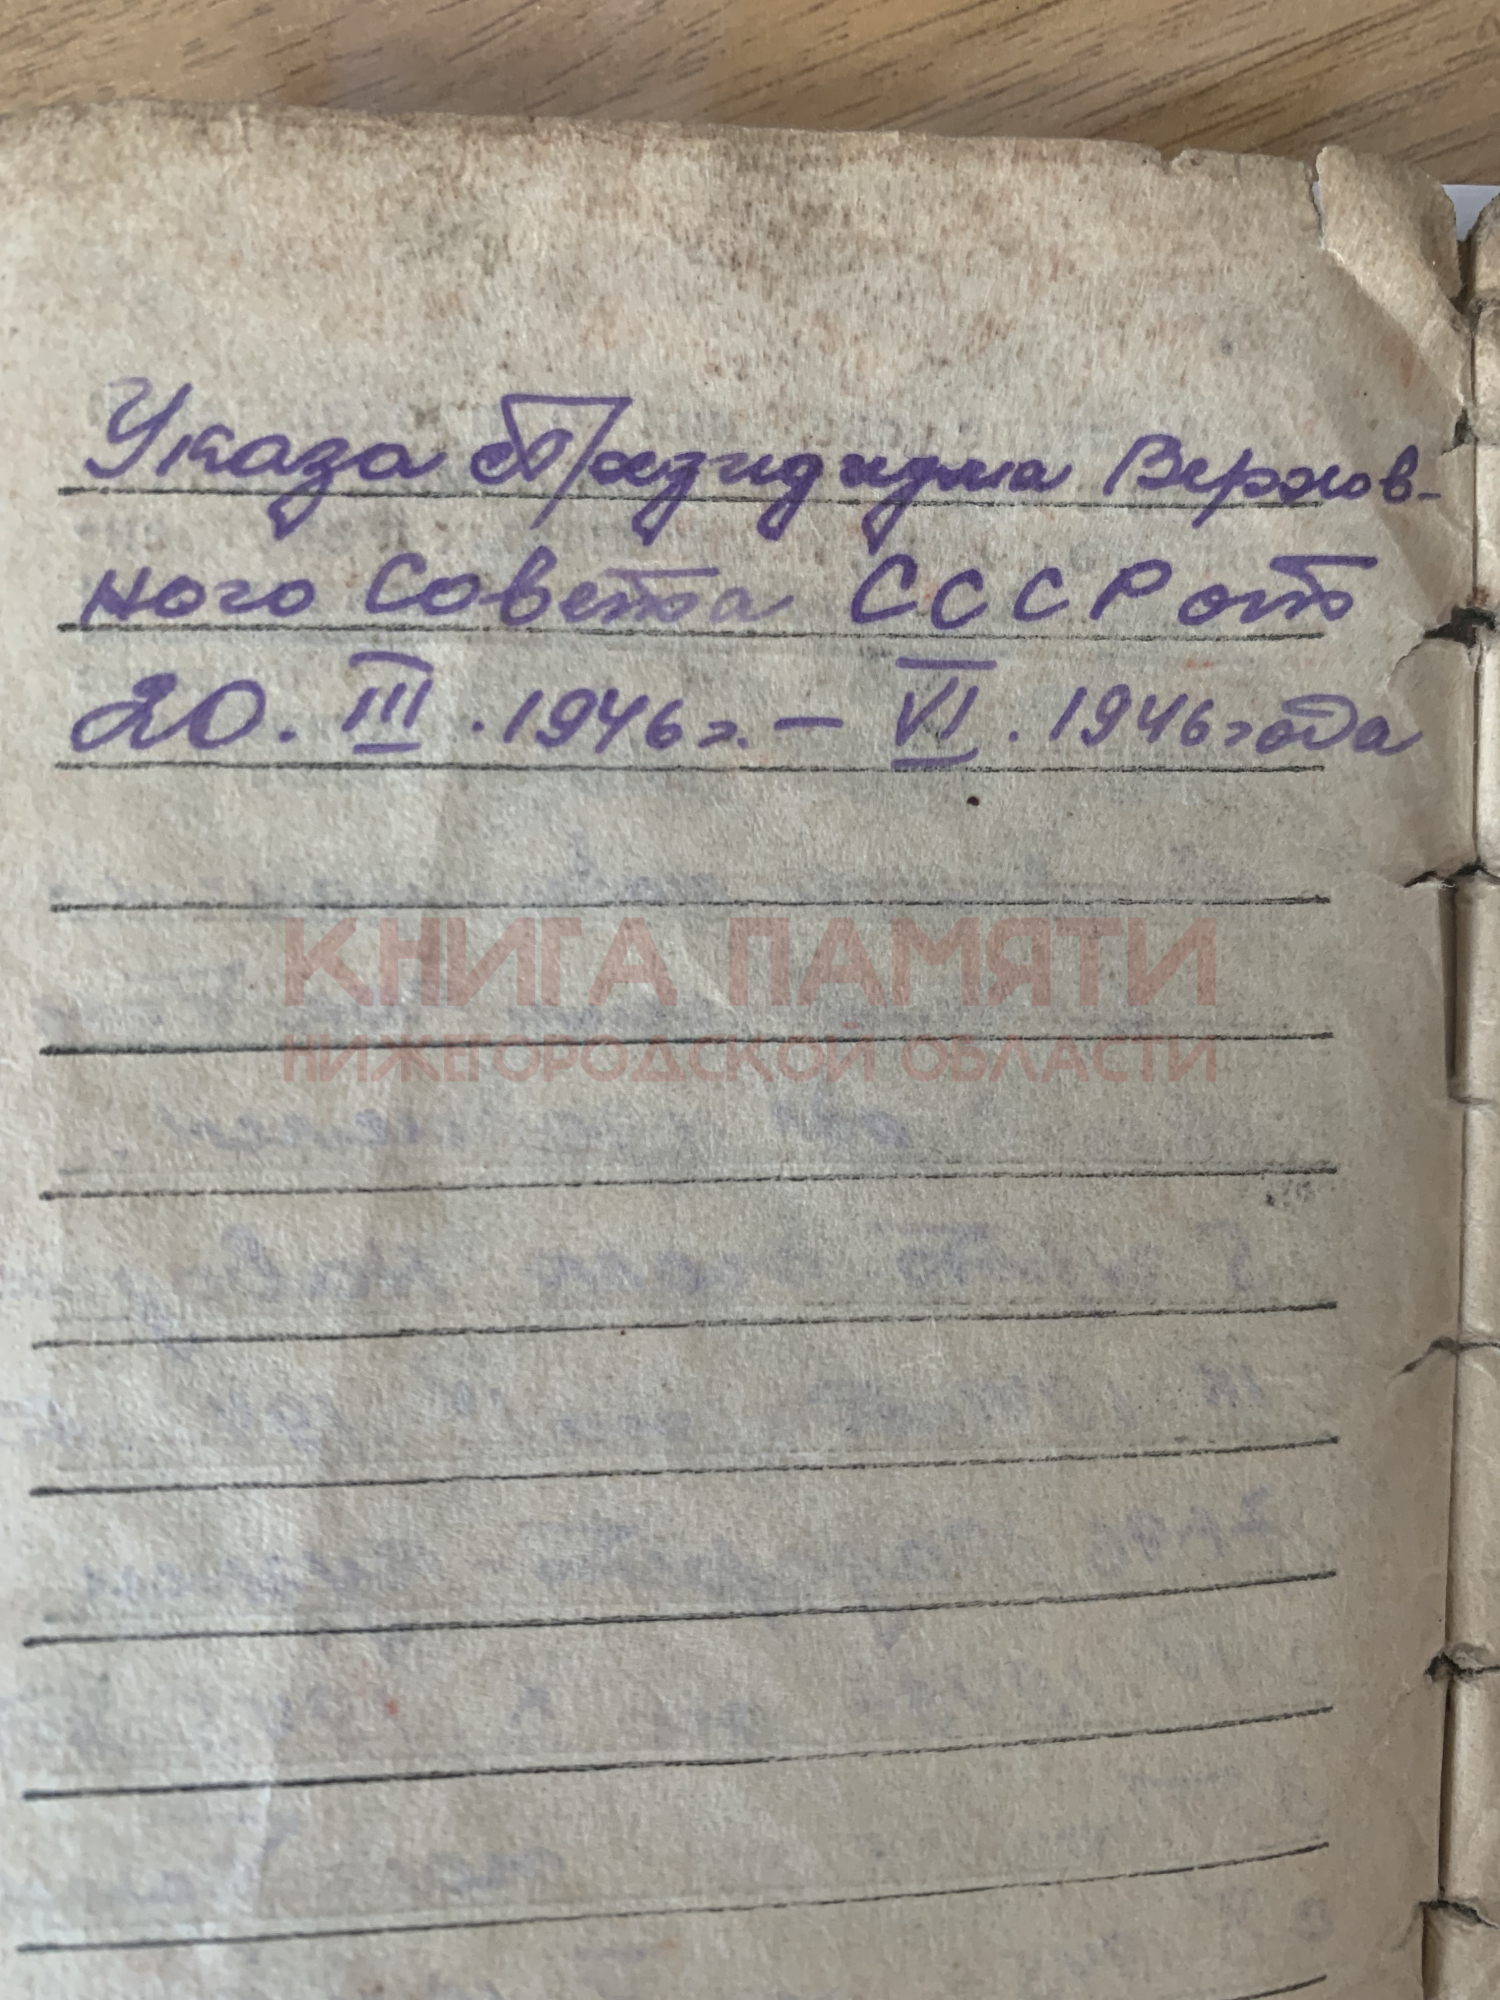 Указа Президиума Верхов-
ного Совета СССР от
20. III. 1946г. – VI. 1946 года
КНИГА ПАМЯТИ
НИЖЕГОРОДСКОЙ ОБЛАСТИ